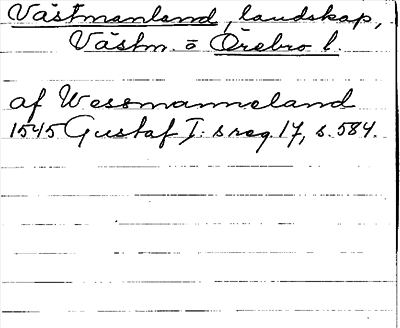 Västmanland, landskap,
Västm. o Örebro l.
af Wessmanneland
1545 Gustaf I:s reg. 17, s. 584.